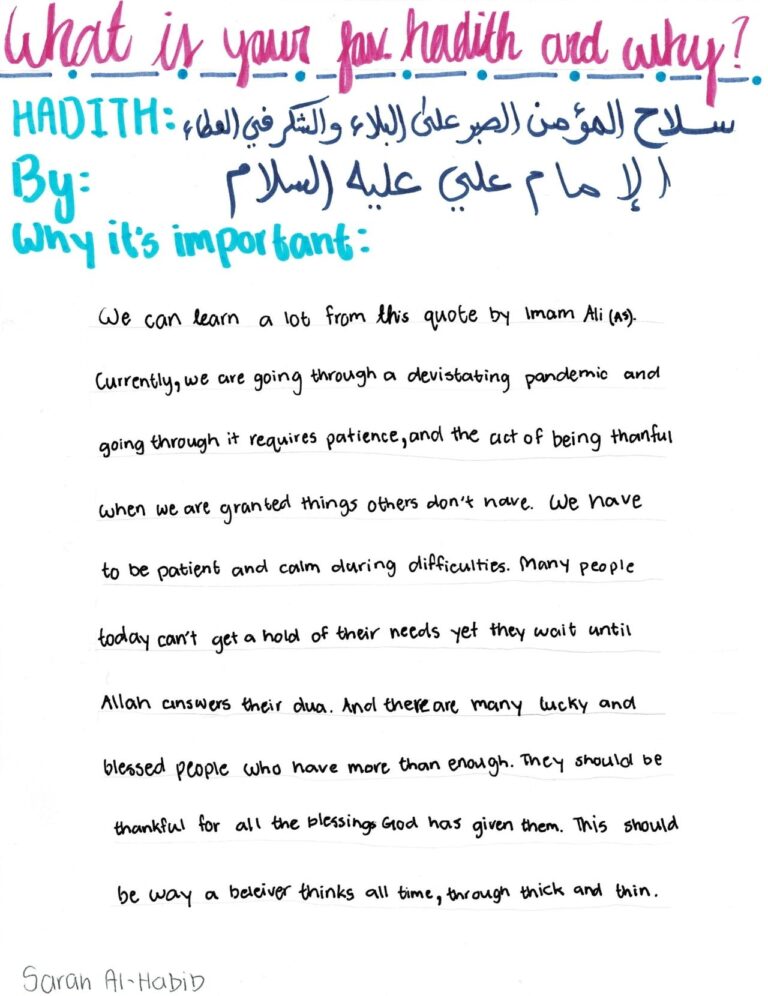 What is your fav hadith and why?
HADITH: سلاح المؤمن الصبر على البلاء والشكر في العطاء
By: الإمام علي عليه السلام
Why it's important:
We can learn a lot from this quote by Imam Ali (AS).
Currently, we are going through a devistating pandemic and
going through it requires patience, and the act of being thanful
when we are granted things others don't have. We have
to be patient and calm during difficulties. Many people
today can't get a hold of their needs yet they wait until
Allah answers their dua. And there are many lucky and
blessed people who have more than enough. They should be
thankful for all the blessings God has given them. This should
be way a beleiver thinks all time, through thick and thin.
Sarah Al-Habib